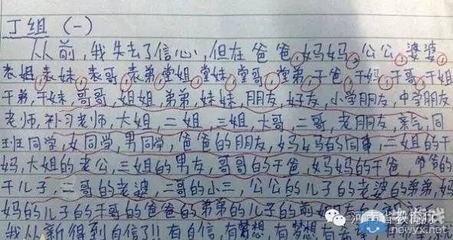 丁组 (一)
从前,我失去了信心,但在爸爸,妈妈,公公,婆婆,
表姐,表妹,表哥,表弟,堂姐,堂妹,堂哥,堂弟,干爸,干妈,干哥,干姐
干弟,干妹,哥哥,姐姐,弟弟,妹妹,朋友,好友,小学朋友,中学朋友
老师,补习老师,大姐,二姐,三姐,大哥,二哥,老朋友,亲气,同
班同学,女同学,男同学,爸爸的朋友,妈妈的同事,二姐的干
妈,大姐的老公,三姐的男友,哥哥的干爸,妈妈的干爸,爷爷的
干儿子,二哥的老婆,二哥的小三,公公的儿子的老婆的弟弟,妈
妈的儿子的干哥的爸爸的弟弟的儿子的前
我从新得到自信了!!有自信,有梦想